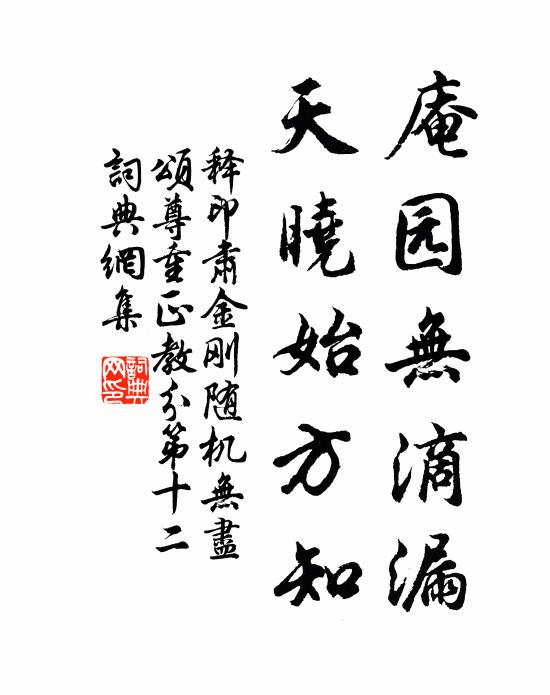 庵园無滴漏
天曉始方知
释印肃金刚随机無盡
頌尊重正教分第十二
詞典網集
詞典網印